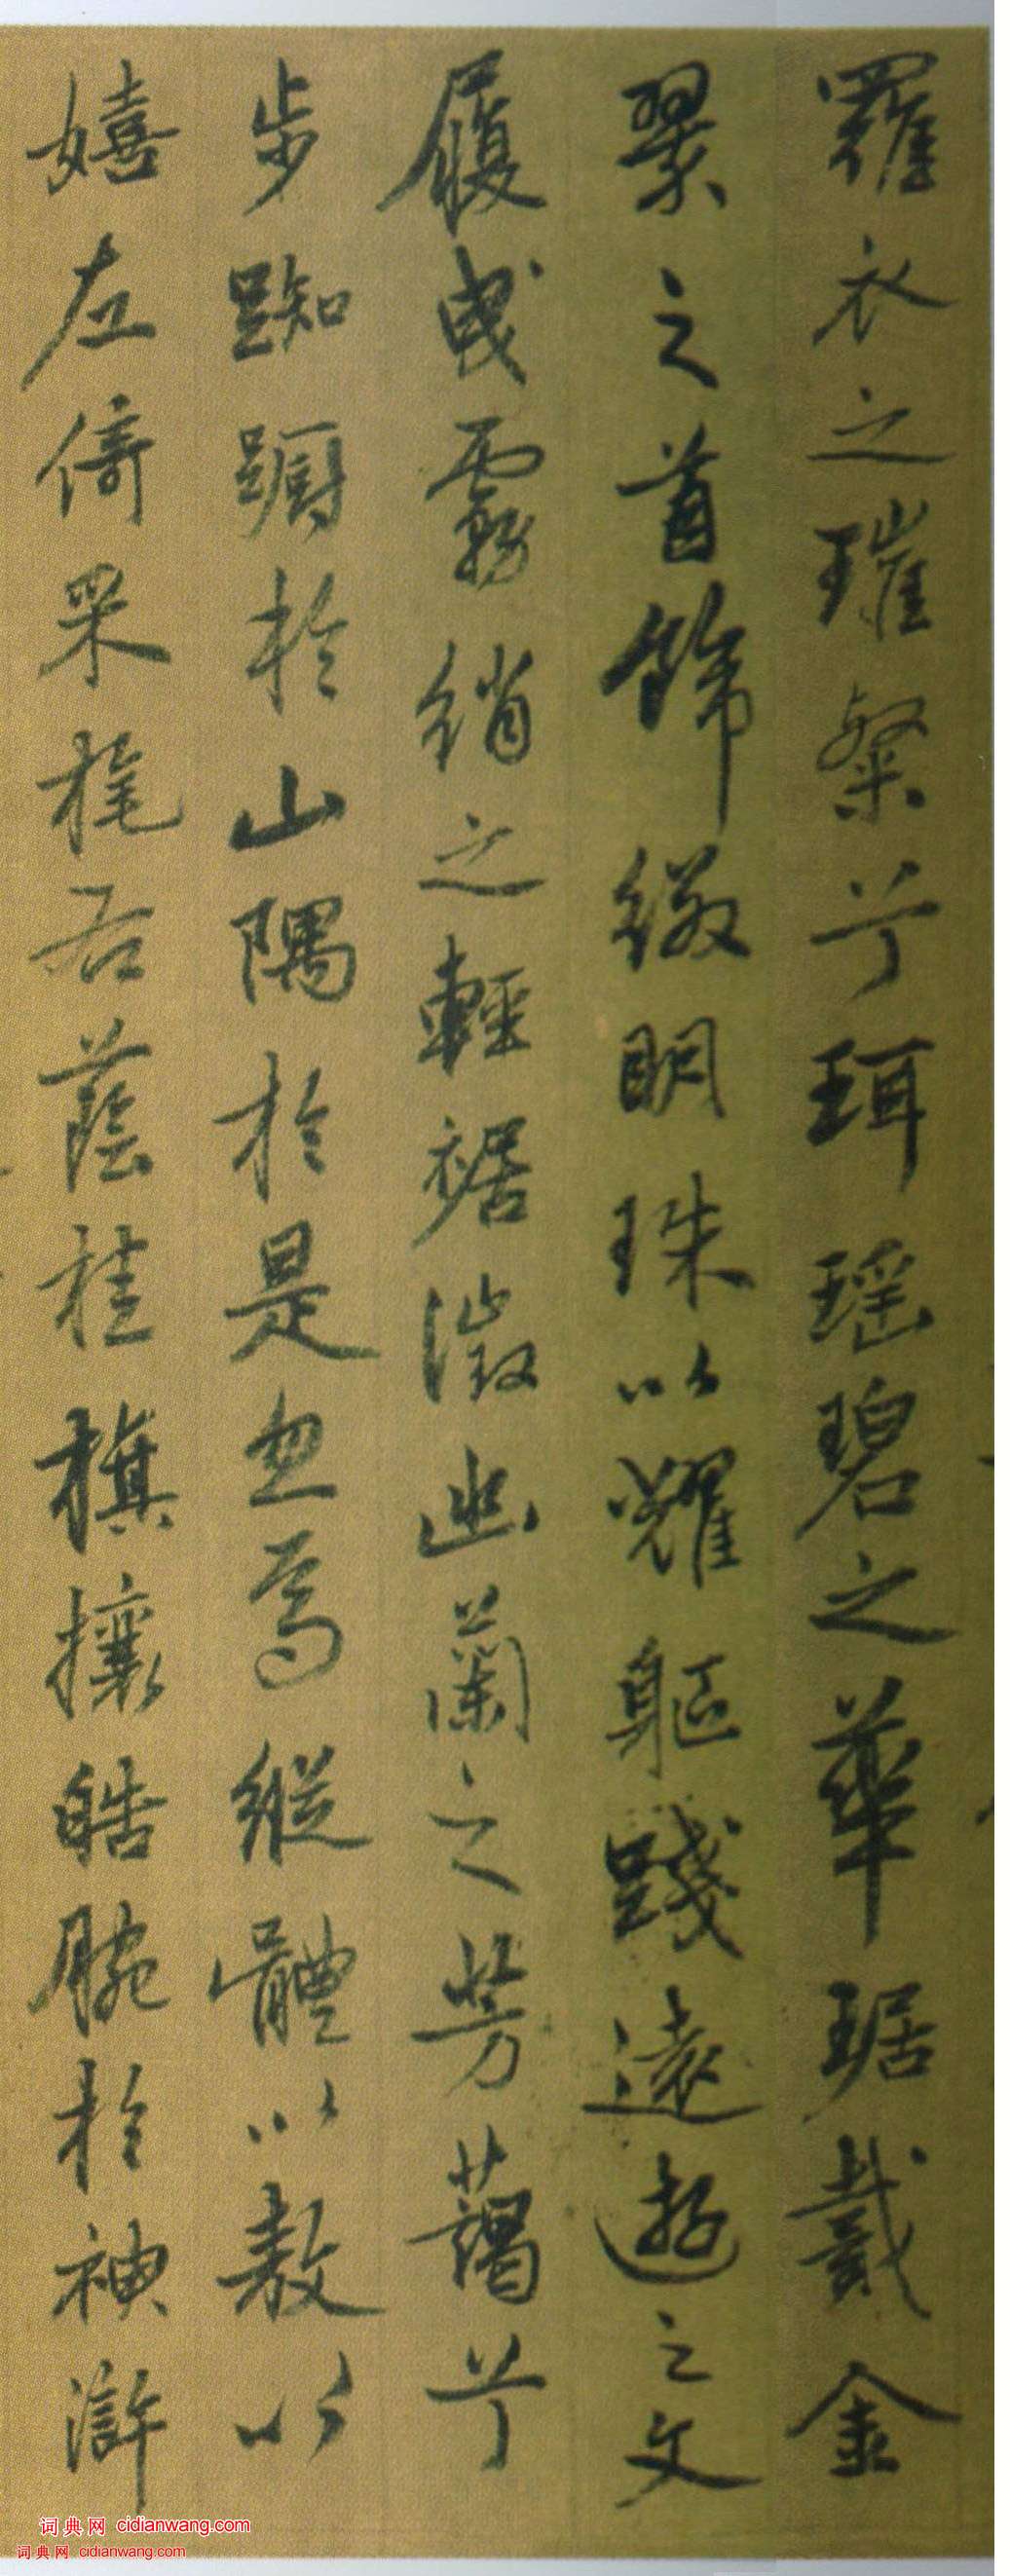 羅衣之璀粲兮珥瑤碧之華琚戴金
翠之首飾綴明珠以耀軀踐遠遊之文
履曳霧綃之輕裾微幽蘭之芳藹兮
步踟躕於山隅於是忽焉縱體以敖以
嬉左倚采旄右蔭桂旗攘皓腕於神滸
词典网 cidianwang.com
词典网 cidianwang.com